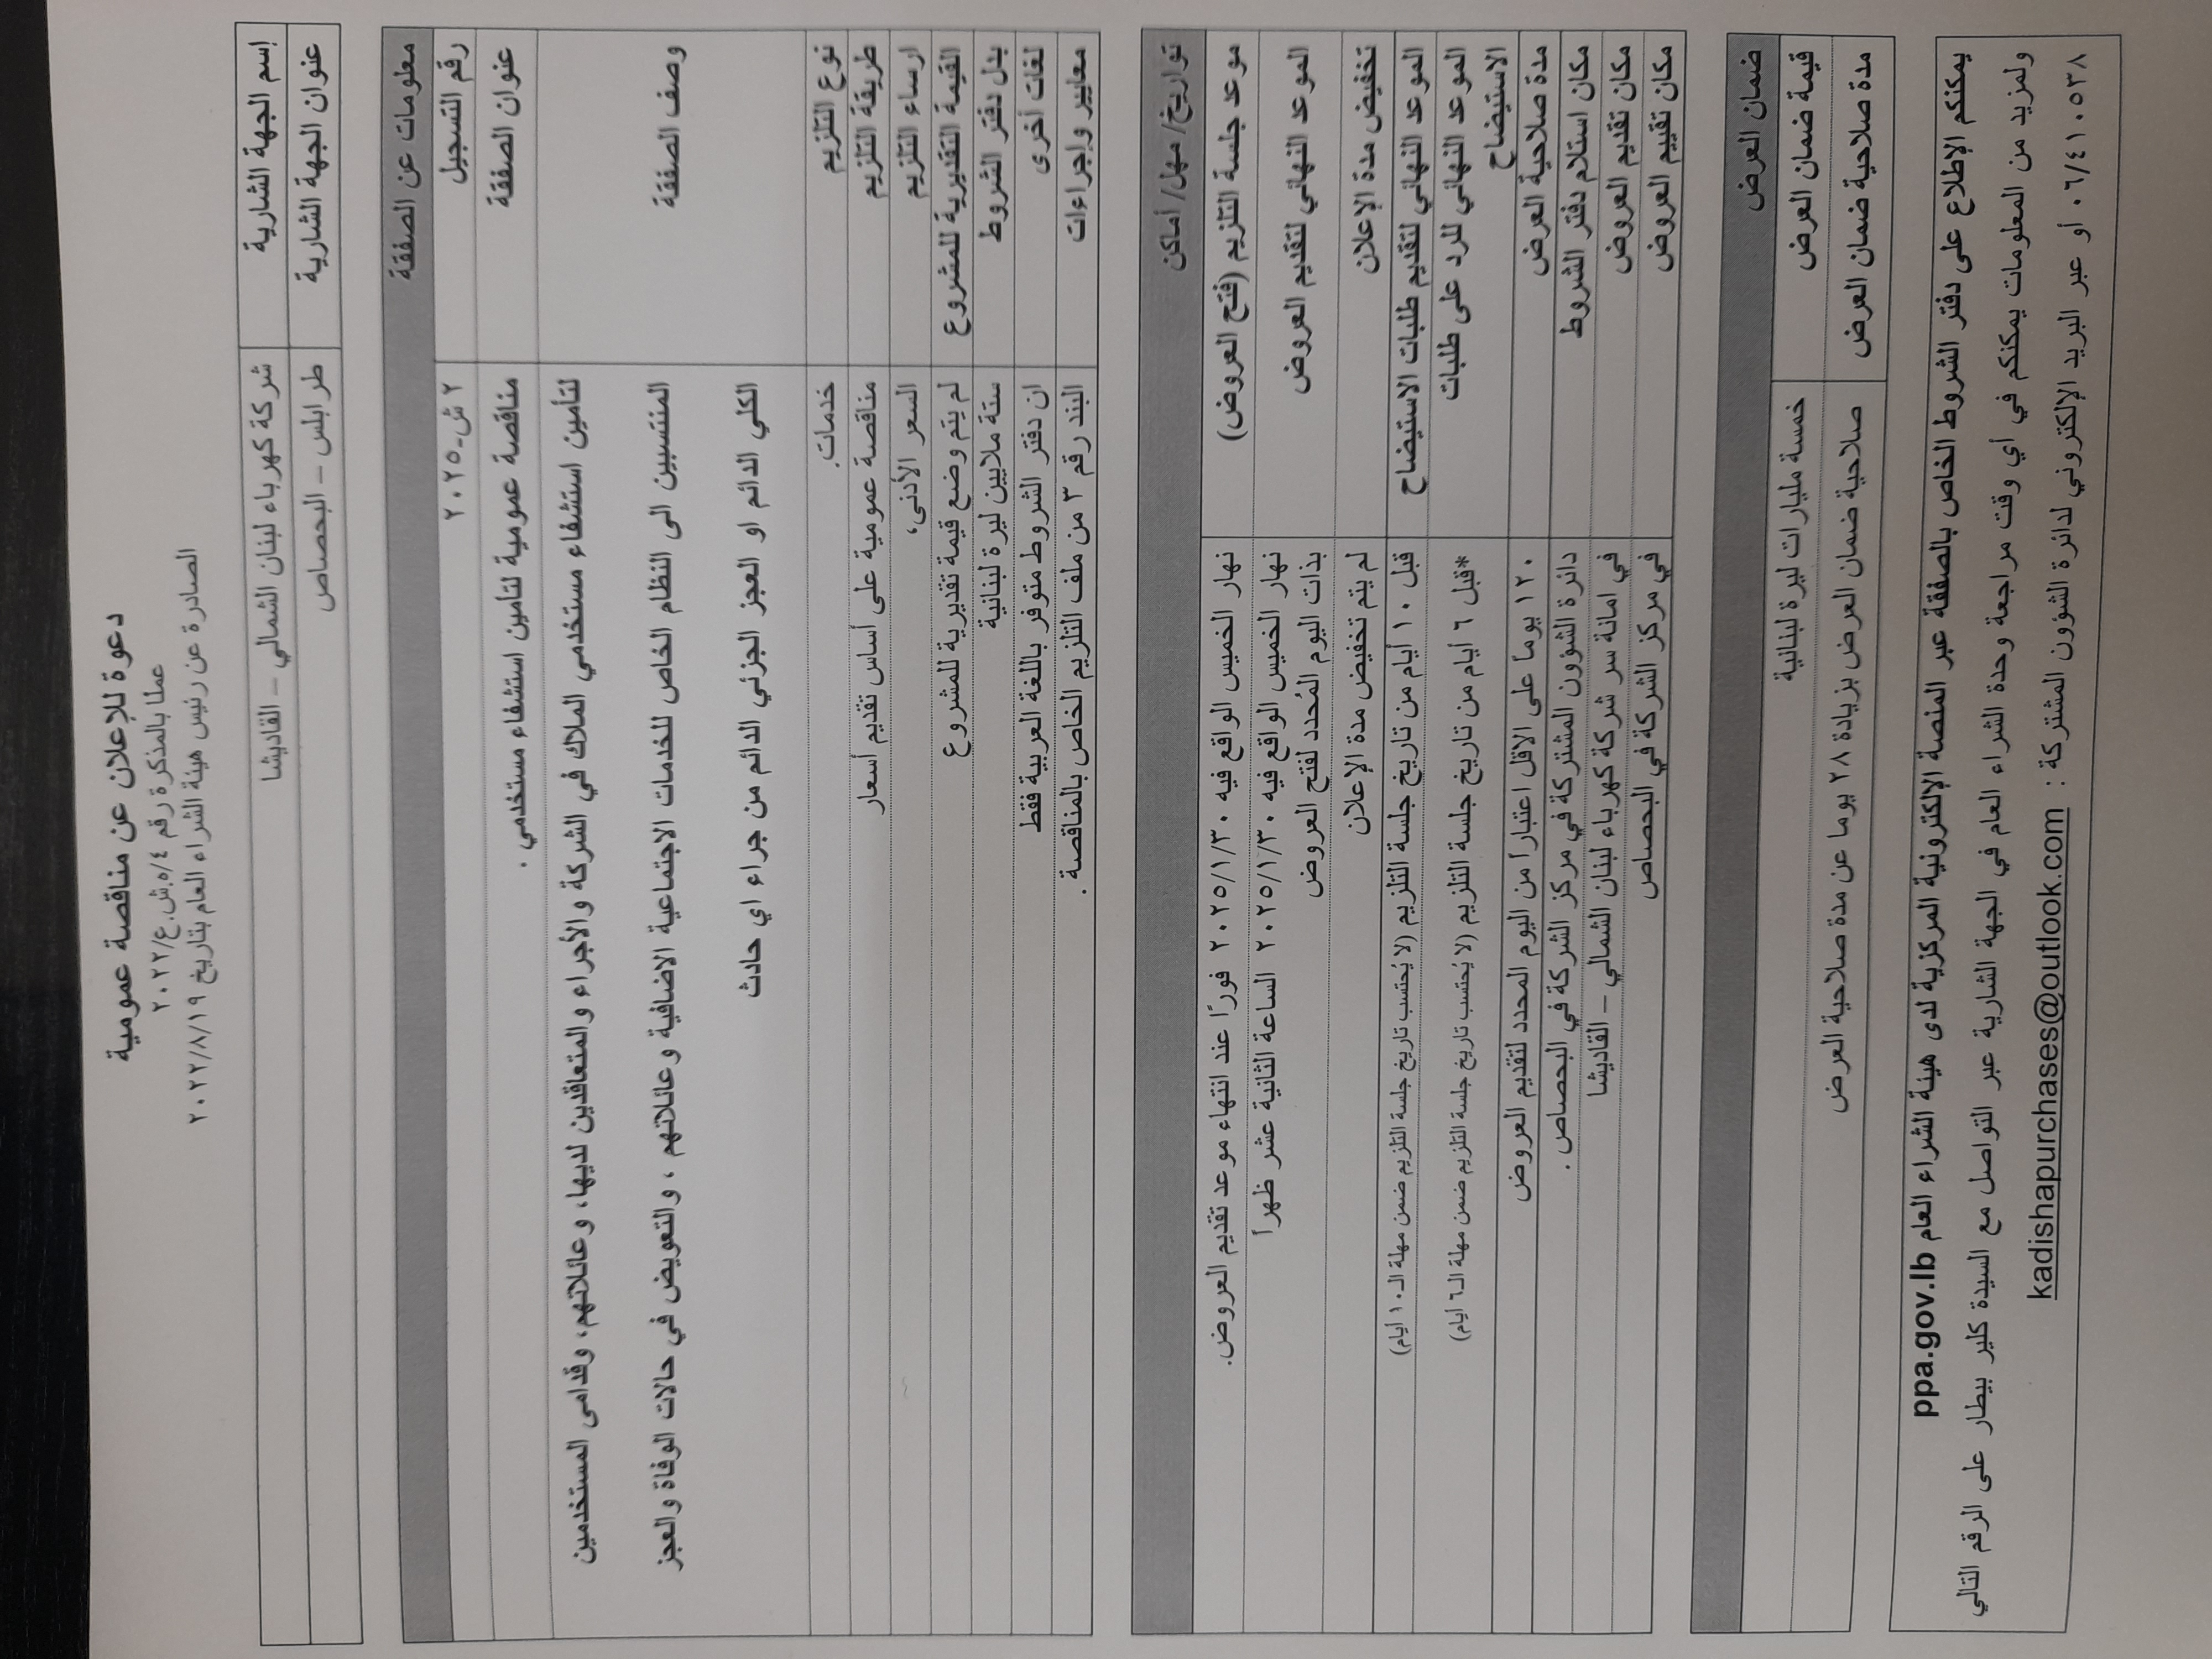 دعوة للإعلان عن مناقصة عمومية
عملا بالمذكرة رقم ٥/٤.ش.ع/٢٠٢٢
الصادرة عن رئيس هيئة الشراء العام بتاريخ ٢٠٢٢/٨/١٩
إسم الجهة الشارية شركة كهرباء لبنان الشمالي – القاديشا
عنوان الجهة الشارية طرابلس – البحصاص
معلومات عن الصفقة
رقم التسجيل ٢ ش-٢٠٢٥
عنوان الصفقة مناقصة عمومية لتأمين استشفاء مستخدمي .
وصف الصفقة لتأمين استشفاء مستخدمي الملاك في الشركة والأجراء والمتعاقدين لديها، وعائلاتهم، وقدامى المستخدمين
المنتسبين الى النظام الخاص للخدمات الاجتماعية الاضافية وعائلاتهم ، والتعويض في حالات الوفاة والعجز
الكلي الدائم او العجز الجزئي الدائم من جراء اي حادث
نوع التلزيم خدمات.
طريقة التلزيم مناقصة عمومية على أساس تقديم أسعار
ارساء التلزيم السعر الأدنى،
القيمة التقديرية للمشروع لم يتم وضع قيمة تقديرية للمشروع
بدل دفتر الشروط ستة ملايين ليرة لبنانية
لغات أخرى ان دفتر الشروط متوفر باللغة العربية فقط
معايير وإجراءات البند رقم ٣ من ملف التلزيم الخاص بالمناقصة .
تواريخ/ مهل/ أماكن
موعد جلسة التلزيم (فتح العروض) نهار الخميس الواقع فيه ٢٠٢٥/١/٣٠ فورًا عند انتهاء موعد تقديم العروض.
الموعد النهائي لتقديم العروض نهار الخميس الواقع فيه ٢٠٢٥/١/٣٠ الساعة الثانية عشر ظهراً
بذات اليوم المُحدد لفتح العروض
تخفيض مدة الإعلان لم يتم تخفيض مدة الإعلان
الموعد النهائي لتقديم طلبات الاستيضاح قبل ١٠ أيام من تاريخ جلسة التلزيم (لا يُحتسب تاريخ جلسة التلزيم ضمن مهلة الـ١٠ أيام)
الموعد النهائي للرد على طلبات
الاستيضاح *قبل ٦ أيام من تاريخ جلسة التلزيم (لا يُحتسب تاريخ جلسة التلزيم ضمن مهلة الـ٦ أيام)
مدة صلاحية العرض ١٢٠ يوما على الاقل اعتباراً من اليوم المحدد لتقديم العروض
مكان استلام دفتر الشروط دائرة الشؤون المشتركة في مركز الشركة في البحصاص .
مكان تقديم العروض في امانة سر شركة كهرباء لبنان الشمالي – القاديشا
مكان تقييم العروض في مركز الشركة في البحصاص
ضمان العرض
قيمة ضمان العرض خمسة مليارات ليرة لبنانية
مدة صلاحية ضمان العرض صلاحية ضمان العرض بزيادة ٢٨ يوما عن مدة صلاحية العرض
يمكنكم الإطلاع على دفتر الشروط الخاص بالصفقة عبر المنصة الإلكترونية المركزية لدى هيئة الشراء العام ppa.gov.lb
ولمزيد من المعلومات يمكنكم في أي وقت مراجعة وحدة الشراء العام في الجهة الشارية عبر التواصل مع السيدة كلير بيطار على الرقم التالي
٠٦/٤١٠٥٣٨ أو عبر البريد الإلكتروني لدائرة الشؤون المشتركة : kadishapurchases@outlook.com